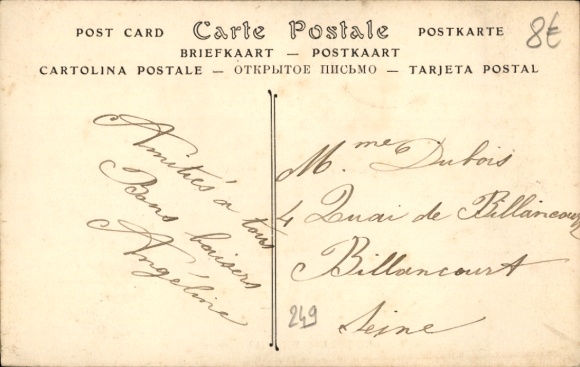 POST CARD Carte Postale POSTKARTE
BRIEFKAART — POSTKAART
CARTOLINA POSTALE — ОТКРЫТОЕ ПИСЬМО — TARJETA POSTAL
8€
Amitiés à tous
Bons baisers
Angéline
M.me Dubois
4 Quai de Billancourt
Billancourt
Seine
249